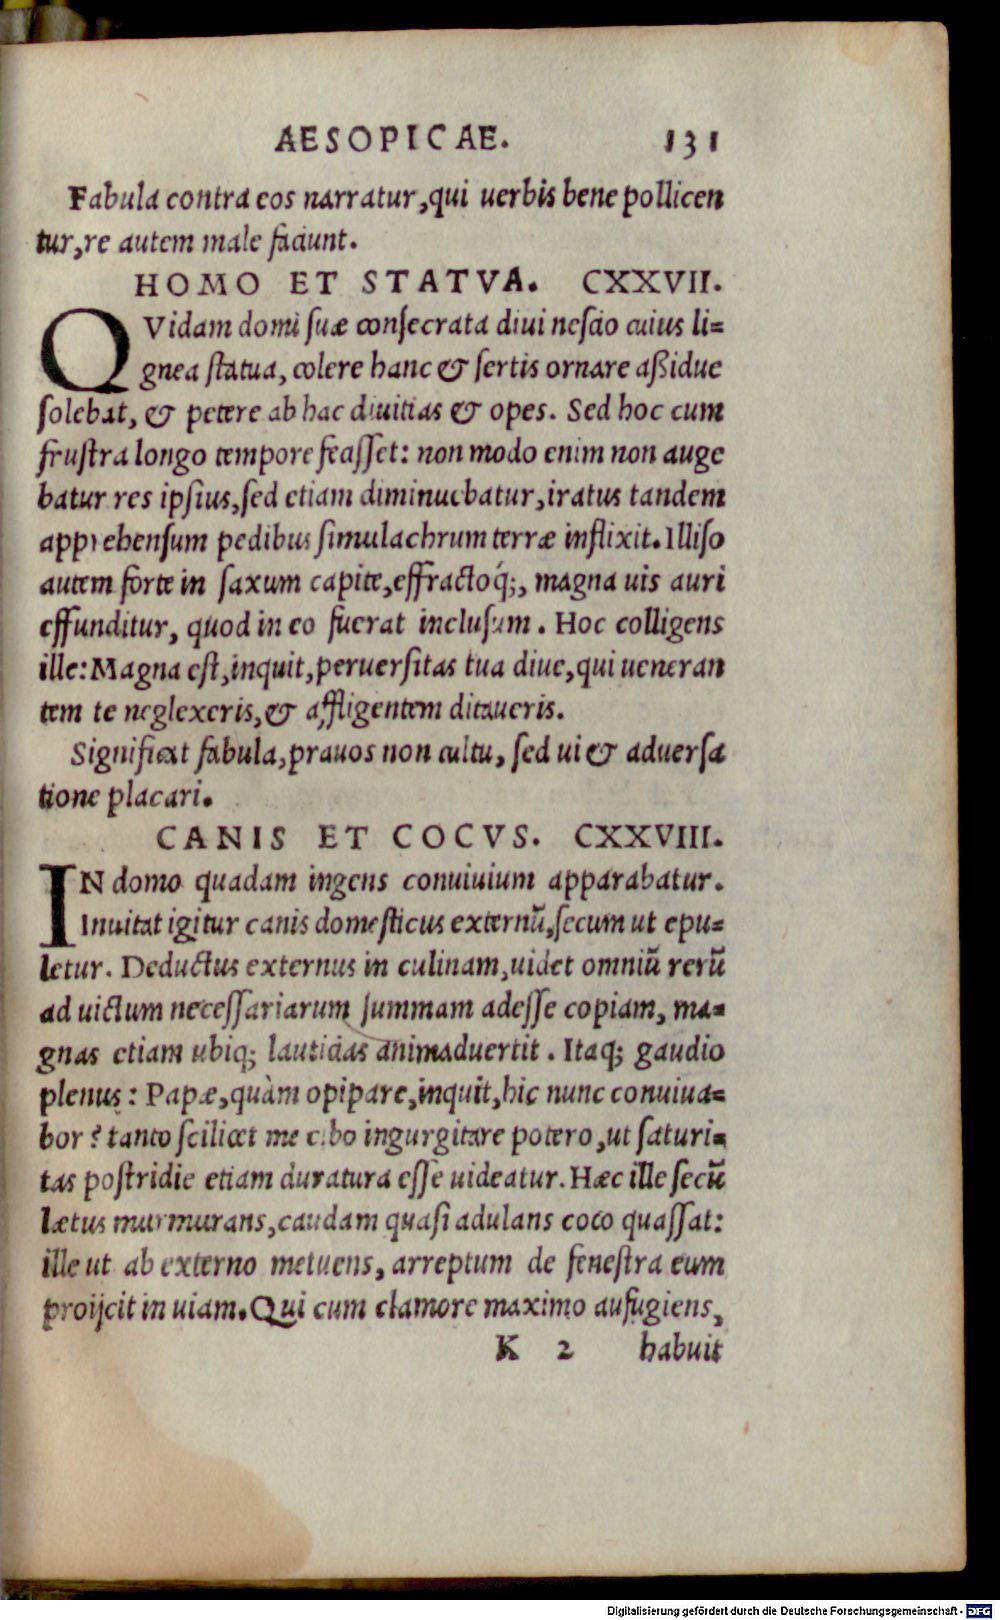 AESOPICAE. 131
Fabula contra eos narratur, qui uerbis bene pollicen
tur, re autem male faciunt.
HOMO ET STATVA. CXXVII.
QVidam domi suæ consecrata diui nescio cuius li=
gnea statua, colere hanc & sertis ornare aßidue
solebat, & petere ab hac diuitias & opes. Sed hoc cum
frustra longo tempore feasset: non modo enim non auge
batur res ipsius, sed etiam diminuebatur, iratus tandem
apprehensum pedibus simulachrum terræ inflixit. Illiso
autem forte in saxum capite, effractoq́;, magna uis auri
effunditur, quod in eo fuerat inclusum. Hoc colligens
ille: Magna est, inquit, peruersitas tua diue, qui ueneran
tem te neglexeris, & affligentem ditaueris.
Significat fabula, prauos non cultu, sed ui & aduersa
tione placari.
CANIS ET COCVS. CXXVIII.
IN domo quadam ingens conuiuium apparabatur.
Inuitat igitur canis domesticus externũ, secum ut epu=
letur. Deductus externus in culinam, uidet omniũ rerũ
ad uictum necessariarum summam adesse copiam, ma=
gnas etiam ubiq; lauticias animaduertit. Itaq; gaudio
plenus: Papæ, quàm opipare, inquit, hic nunc conuiua=
bor? tanto scilicet me cibo ingurgitare potero, ut saturi=
tas postridie etiam duratura esse uideatur. Hæc ille secũ
lætus murmurans, caudam quasi adulans coco quassat:
ille ut ab externo metuens, arreptum de fenestra eum
proijcit in uiam. Qui cum clamore maximo aufugiens,
K 2 habuit
Digitalisierung gefördert durch die Deutsche Forschungsgemeinschaft - DFG